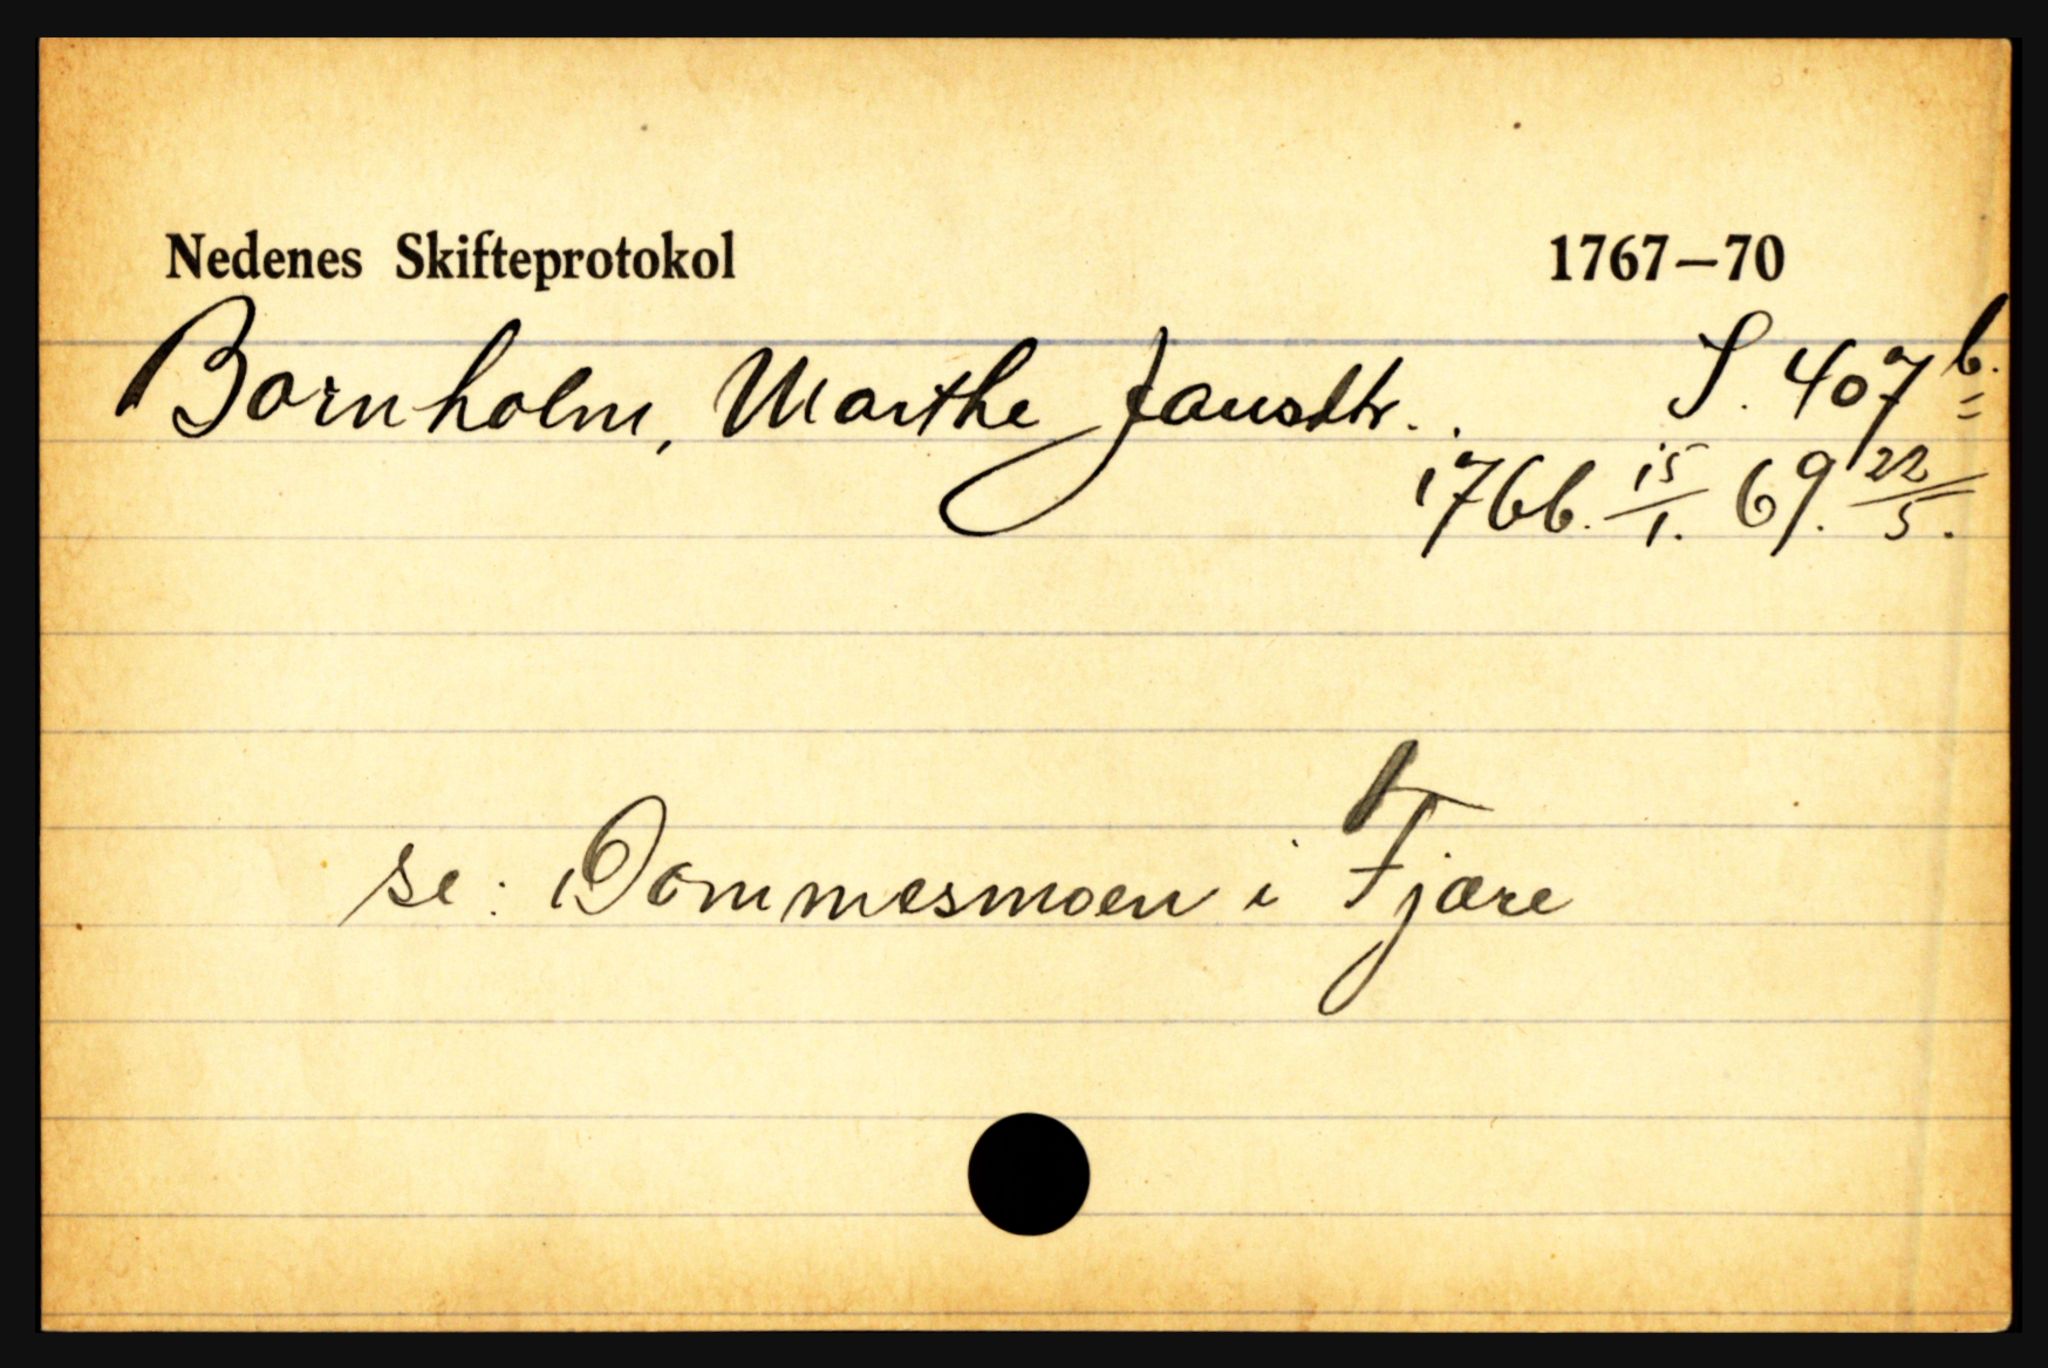 Nedenes Skifteprotokol 1767—70
Bornholm, Marthe Jansdtr. S. 407 b.
1766. 15/1. 69. 22/5.
se: Dømmesmoen i Fjære